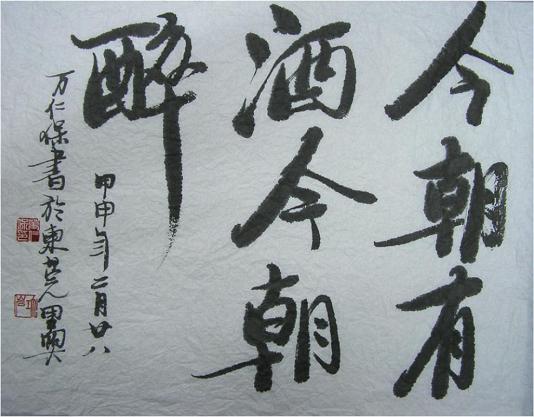 今朝有
酒今朝
醉
甲申年二月廿八
万仁保書於東莞